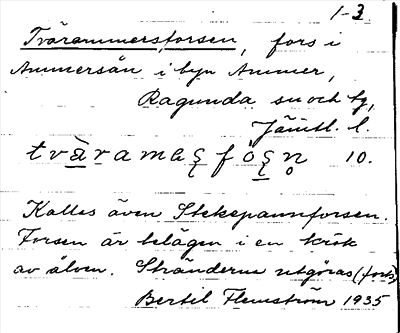 1-3
Tvärammersforsen, fors i
Ammersån i byn Ammer,
Ragunda sn och tg,
Jämtl. l.
10.
Kallas även Stekepannforsen.
Forsen är belägen i en krök
av älven. Stränderna utgöras (forts)
Bertil Flemström 1935